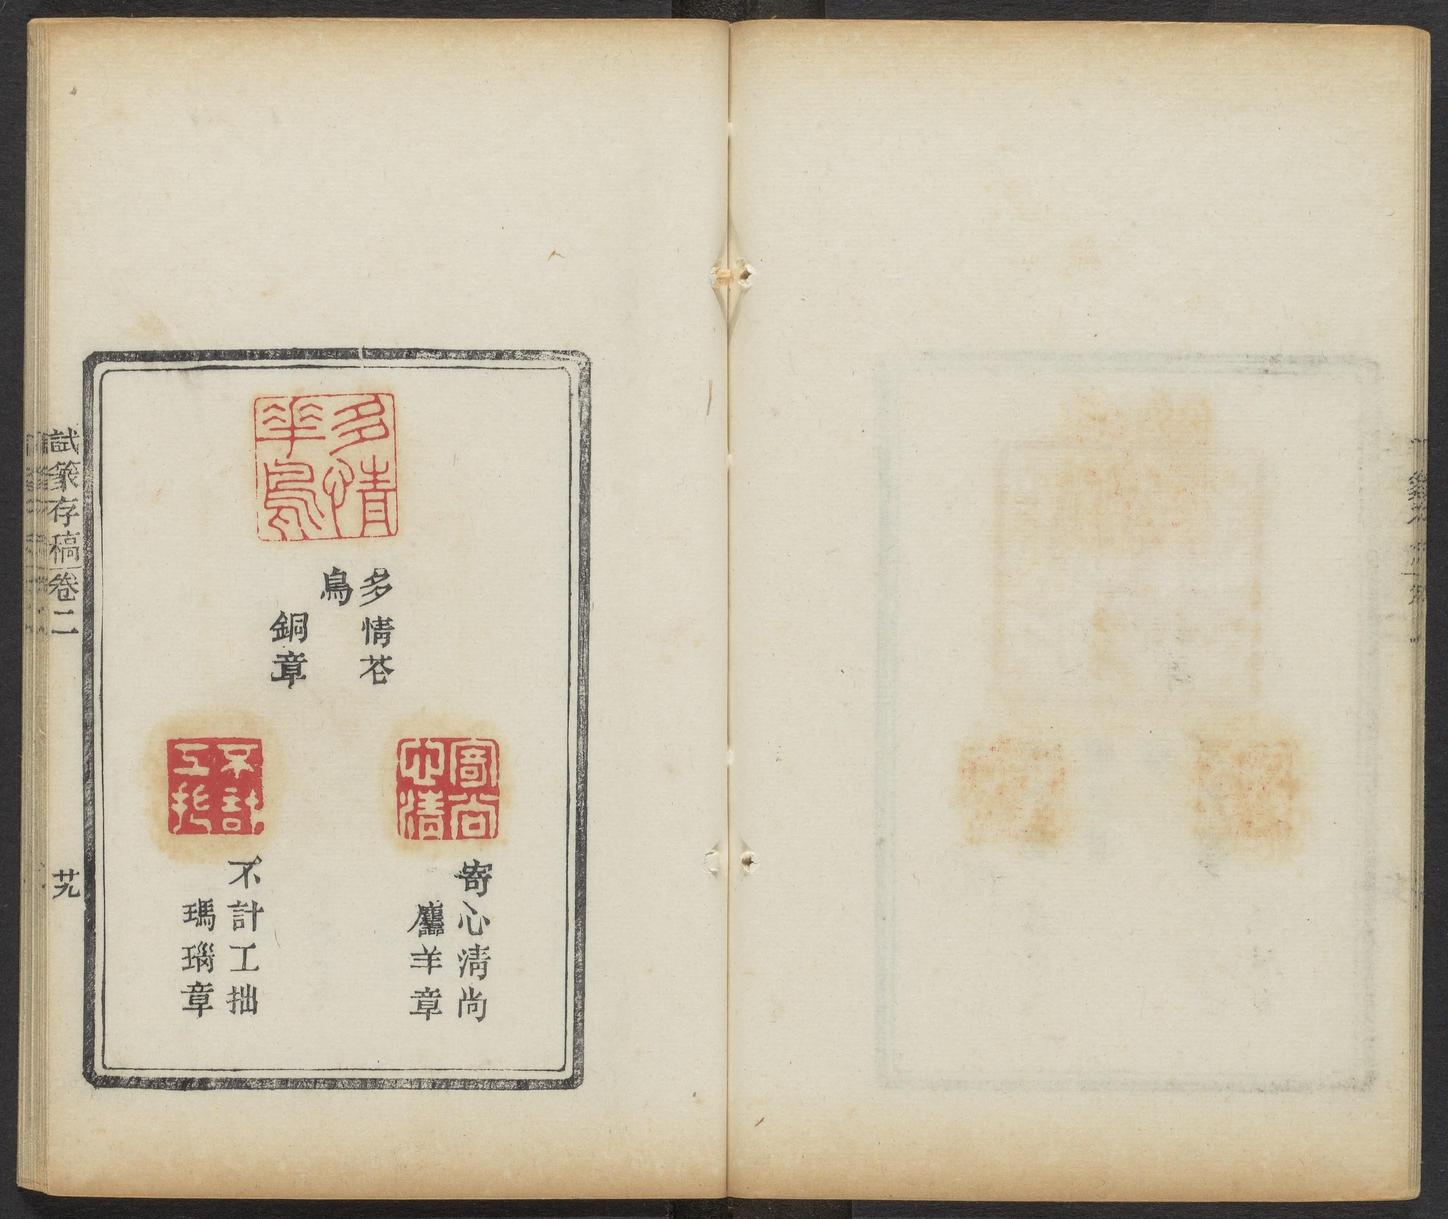 多情
華鳥
多情苍
鳥
銅章
寄尚
心清
寄心淸尚
麤羊章
不計
工拙
不計工拙
瑪瑙章
試篆存稿 卷二
廿九